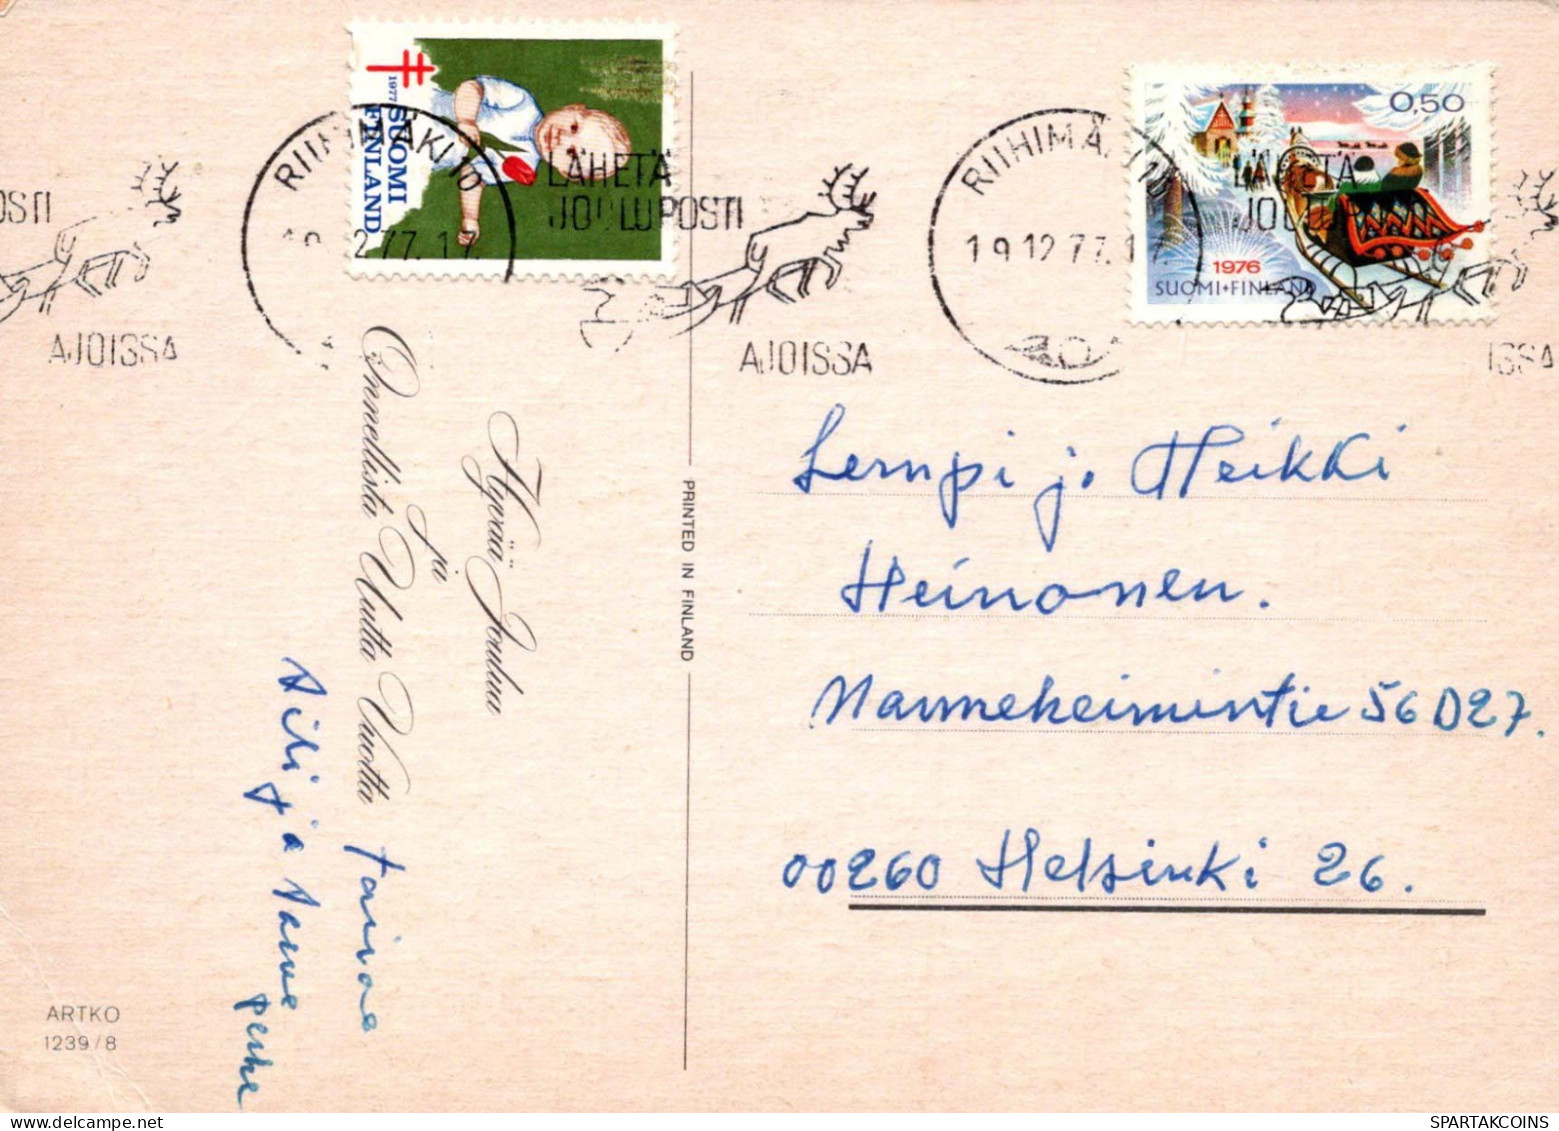 1977 SUOMI
FINLAND
0,50
1976
SUOMI+FINLAND
RIIHIMÄKI 10
19.12.77.17
LÄHETÄ
JOULUPOSTI
AJOISSA
RIIHIMÄKI 10
19.12.77.17
LÄHETÄ
AJOISSA
OSTI
ISSA
Hyvää Joulua
ja
Onnellista Uutta Vuotta
PRINTED IN FINLAND
Lempi ja Heikki
Heinonen.
Mannerheimintie 56 D 27.
00260 Helsinki 26.
ARTKO
1239/8
SPARTAKCOINS